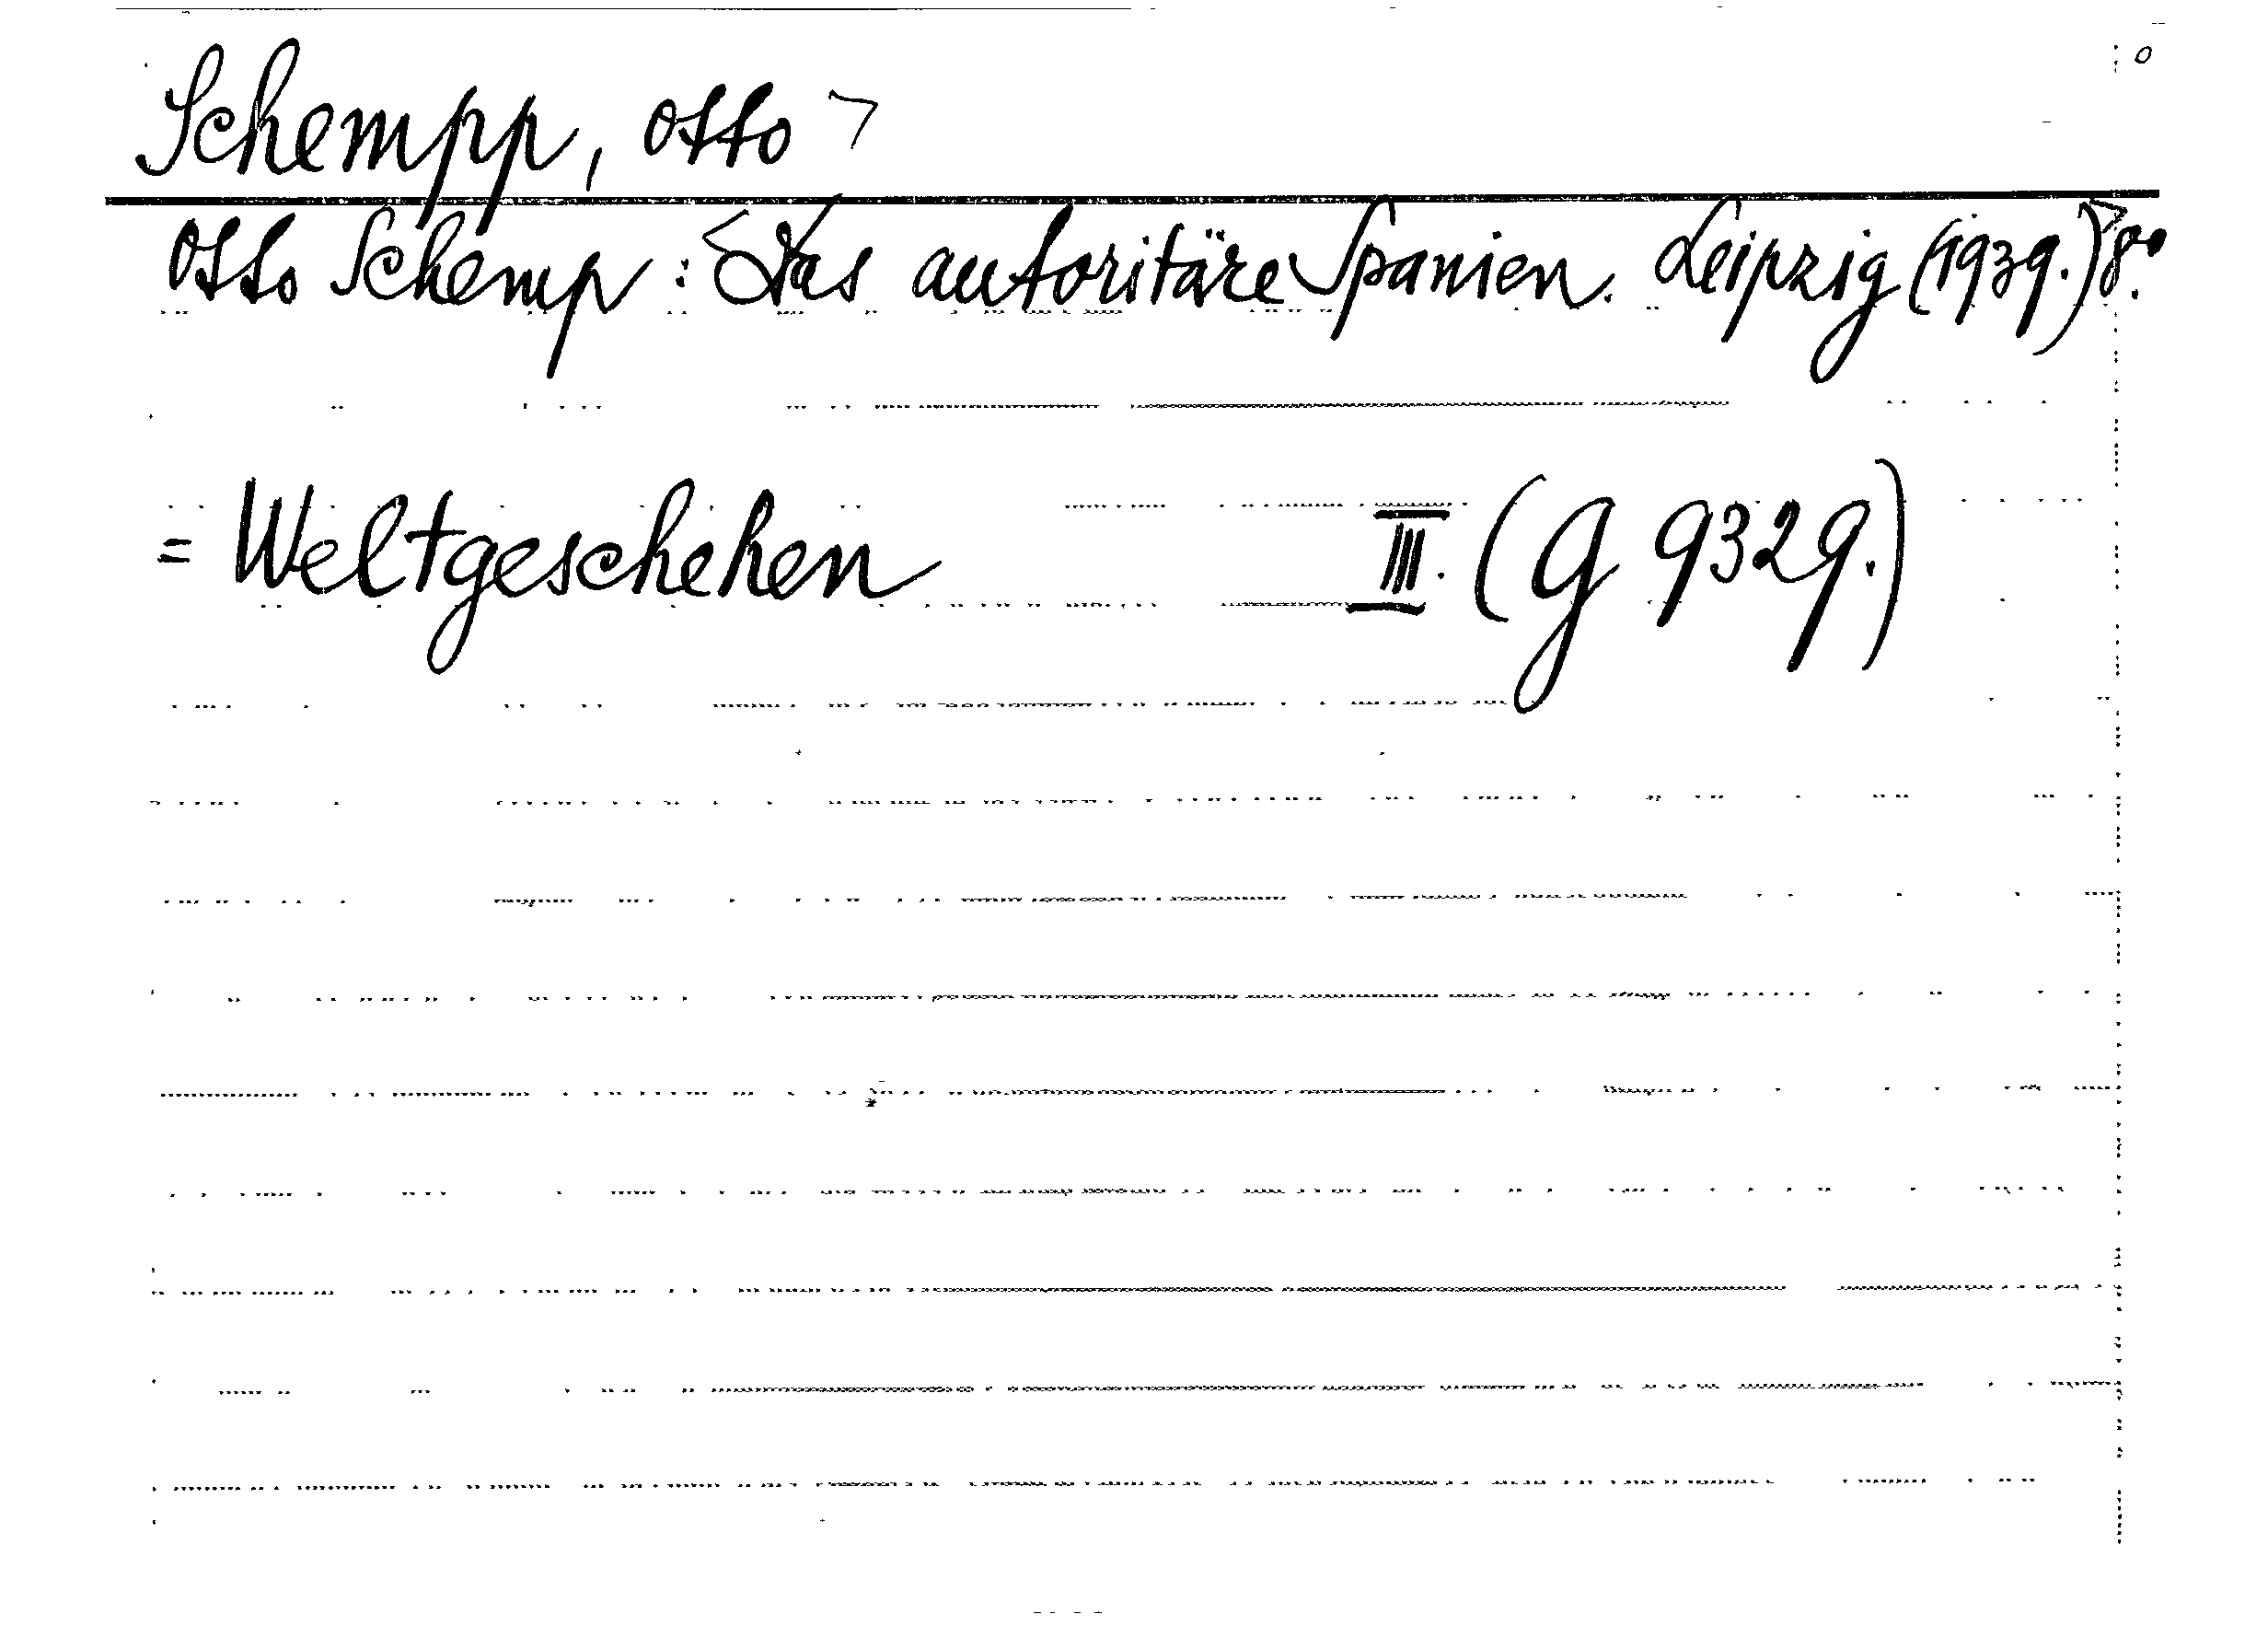 Schempp, Otto >
Otto Schemp: <Das autoritäre Spanien. Leipzig (1939.)> 8°.
= Weltgeschehen III. (G 9329.)